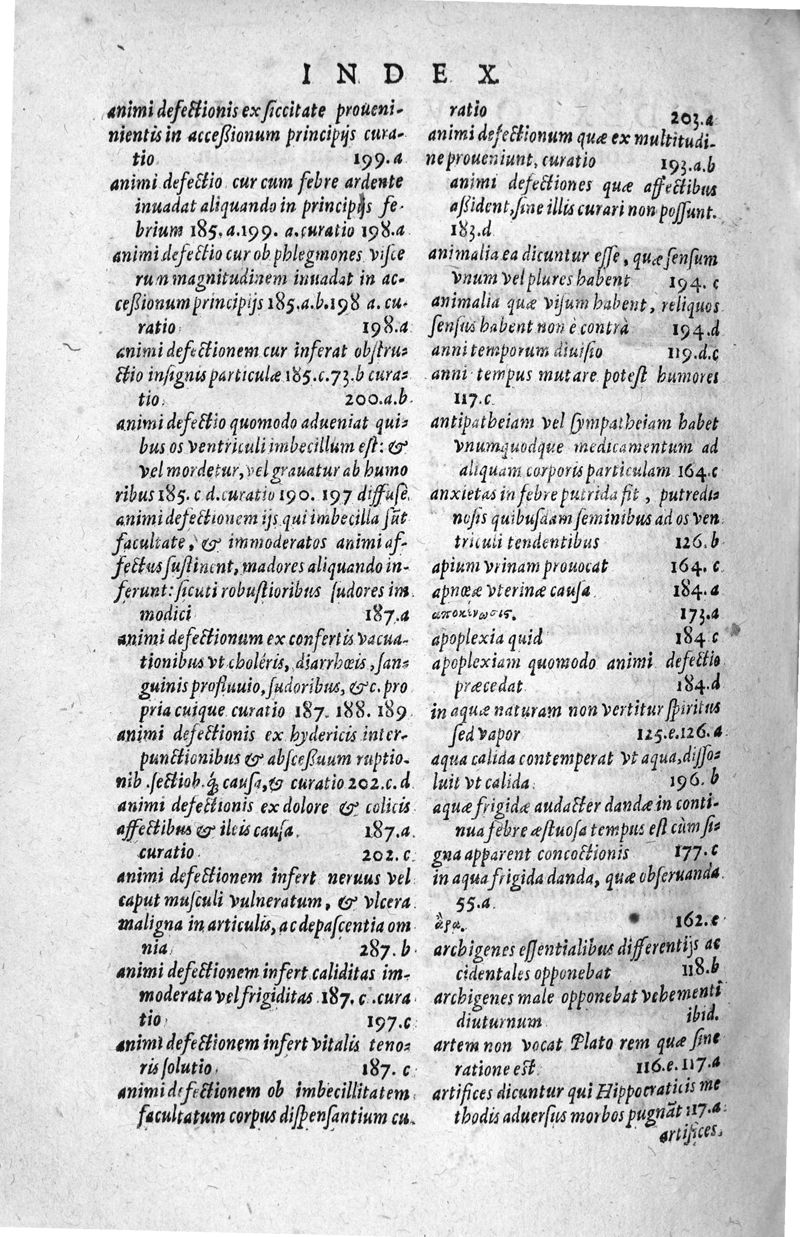 INDEX
animi defectionis ex siccitate proueni-
nientis in acceßionum principijs cura-
tio 199.a
animi defectio cur cum febre ardente
inuadat aliquando in principijs fe-
brium 185.a.199. a.curatio 198.a
animi defectio cur ob phlegmones visce
rum magnitudinem inuadat in ac-
ceßionum principijs 185.a.b.198 a. cu-
ratio 198.a
animi defectionem cur inferat obstru-
ctio insignis particulæ 185.c.73.b cura-
tio 200.a.b
animi defectio quomodo adueniat qui-
bus os ventriculi imbecillum est: &
vel mordetur, vel grauatur ab humo
ribus 185. c d.curatio 190. 197 diffusè
animi defectionem ijs qui imbecilla sūt
facultate, & immoderatos animi af-
fectus sustinent, madores aliquando in-
ferunt: sicuti robustioribus sudores im
modici 187.a
animi defectionum ex confertis vacua-
tionibus vt choléris, diarrhœis, san-
guinis profluuio, sudoribus, &c. pro
pria cuique curatio 187. 188. 189
animi defectionis ex hydericis inter-
punctionibus & absceßuum ruptio-
nib. sectiob. q́; causa, & curatio 202.c.d
animi defectionis ex dolore & colicis
affectibus & ileis causa 187.a.
curatio 202.c
animi defectionem infert neruus vel
caput musculi vulneratum, & vlcera
maligna in articulis, ac depascentia om
nia 287.b
animi defectionem infert caliditas im-
moderata vel frigiditas 187. c .cura
tio 197.c
animi defectionem infert vitalis teno-
ris solutio 187. c
animi defectionem ob imbecillitatem
facultatum corpus dispensantium cu.
ratio 203.a
animi defectionum quæ ex multitudi-
ne proueniunt, curatio 193.a.b
animi defectiones quæ affectibus
aßident, sine illis curari non possunt.
183.d
animalia ea dicuntur esse, quæ sensum
vnum vel plures habent 194. c
animalia quæ visum habent, reliquos
sensus habent non è contrà 194.d
anni temporum diuisio 119.d.c
anni tempus mutare potest humores
117.c
antipatheiam vel sympatheiam habet
vnumquodque medicamentum ad
aliquam corporis particulam 164.c
anxietas in febre putrida fit, putredi-
nosis quibusdam seminibus ad os ven
triculi tendentibus 126.b
apium vrinam prouocat 164. c
apnœæ vterinæ causa 184.a
αποκίνωσις. 173.a
apoplexia quid 184 c
apoplexiam quomodo animi defectio
præcedat 184.d
in aquæ naturam non vertitur spiritus
sed vapor 125.e.126.a
aqua calida contemperat vt aqua, disso-
luit vt calida 196. b
aquæ frigidæ audacter dandæ in conti-
nua febre æstuosa tempus est cùm si-
gna apparent concoctionis 177.c
in aqua frigida danda, quæ obseruanda
55.a
ἄρα. 162.e
archigenes essentialibus differentijs ac
cidentales opponebat 118.b
archigenes male opponebat vehementi
diuturnum ibid.
artem non vocat Plato rem quæ sine
ratione est 116.e.117.a
artifices dicuntur qui Hippocraticis me
thodis aduersus morbos pugnāt 117.a
artifices,